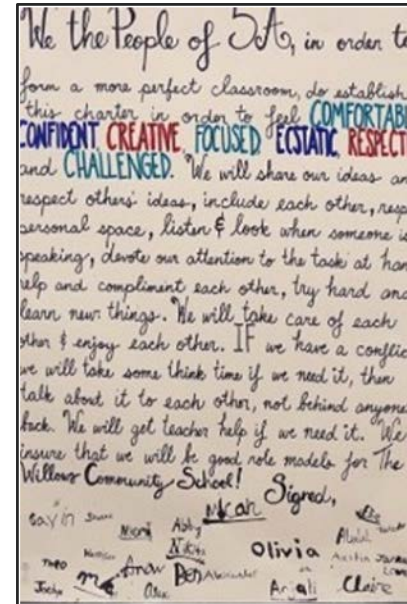 We the People of 5A, in order to
form a more perfect classroom, do establish
this charter in order to feel COMFORTAB
CONFIDENT, CREATIVE, FOCUSED, ECSTATIC, RESPECT
and CHALLENGED. We will share our ideas an
respect others' ideas, include each other, resp
personal space, listen & look when someone is
speaking, devote our attention to the task at han
help and compliment each other, try hard and
learn new things. We will take care of each
other & enjoy each other. IF we have a conflic
we will take some think time if we need it, then
talk about it to each other, not behind anyone
back. We will get teacher help if we need it. We
insure that we will be good role models for The
Willows Community School!
Signed,
Micah
Abby
Olivia
Ben Alexander
Anjali Claire